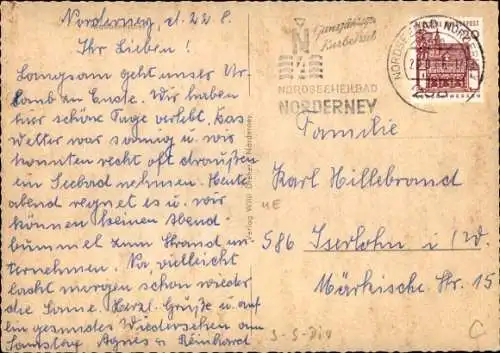 Norderney, d. 22. 8.
Ihr Lieben!
Langsam geht unser Ur-
laub zu Ende. Wir haben
hier schöne Tage verlebt. Das
Wetter war sonnig u. wir
konnten recht oft draußen
ein Seebad nehmen. Heute
abend regnet es u. wir
können keinen Abend-
bummel zum Strand un-
ternehmen. Na, vielleicht
lacht morgen schon wieder
die Sonne. Herzl. Grüße u. auf
ein gesundes Wiedersehen am
Samstag Agnes u. Reinhard
Ganzjähriger
Kurbetrieb
N
NORDSEEHEILBAD
NORDERNEY
NORDSEEBAD NORDERNEY
Familie
Karl Hillebrand
586 Iserlohn i/W.
Märkische Str. 15